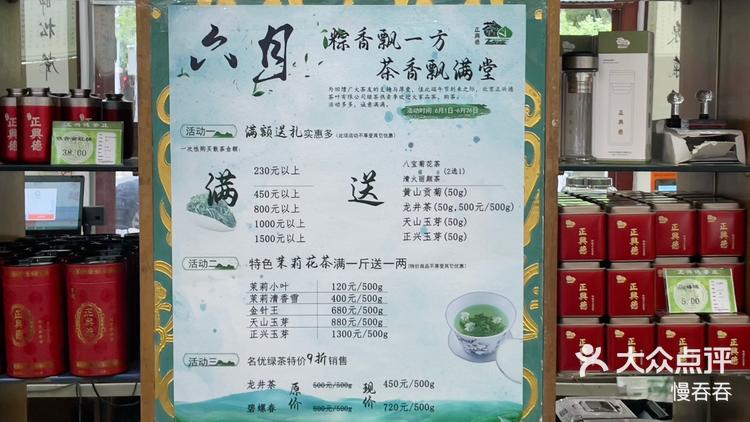 六月
粽香飘一方
茶香飘满堂
正興德
为回馈广大茶友的支持与厚爱，值此端午节到来之际，北京正兴德
茶叶有限公司绿茶热卖季欢迎大家品茶、购茶。
活动多多，诚意满满。
活动时间 6月1日-6月26日
活动一 满额送礼实惠多(此项活动不兼享受其它优惠)
一次性购买散茶金额：
满 送
230元以上 八宝菊花茶
清火丽颜茶 (2选1)
450元以上 黄山贡菊(50g)
800元以上 龙井茶(50g,500元/500g)
1000元以上 天山玉芽(50g)
1500元以上 正兴玉芽(50g)
活动二 特色茉莉花茶满一斤送一两(特价商品不享受其它优惠)
茉莉小叶 120元/500g
茉莉清香雪 400元/500g
金针王 680元/500g
天山玉芽 880元/500g
正兴玉芽 1300元/500g
活动三 名优绿茶特价9折销售
龙井茶 原价 500元/500g 现价 450元/500g
碧螺春 800元/500g 720元/500g
正興德
38.00
正興德
正興德
正興德
正興德
正興德
5.00
大众点评
慢吞吞